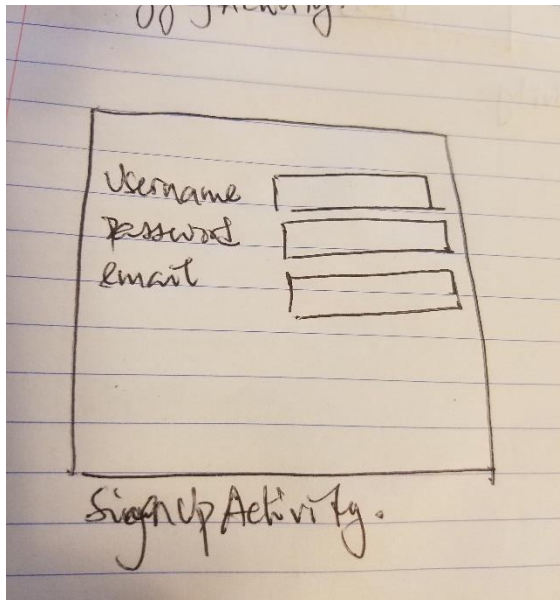 Username
Password
email
SignUpActivity.